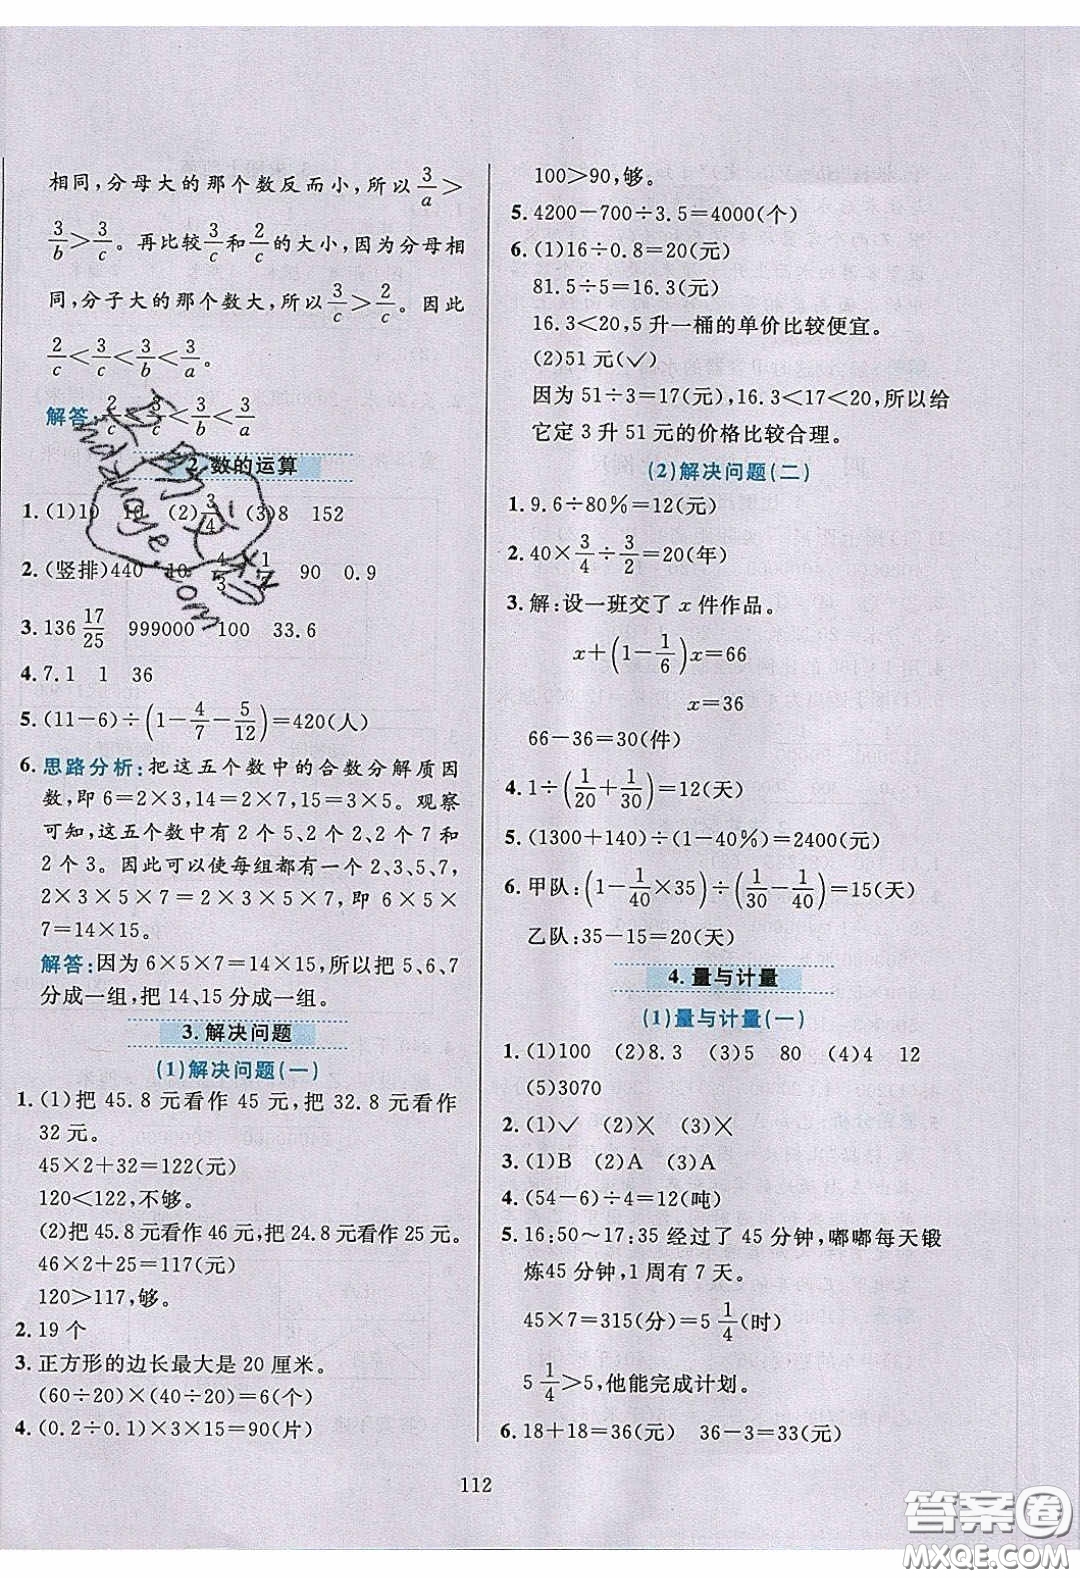 相同,分母大的那个数反而小,所以3/a>
3/b>3/c。再比较3/c和2/c的大小,因为分母相
同,分子大的那个数大,所以3/c>2/c。因此
2/c<3/c<3/b<3/a。
解答:2/c<3/c<3/b<3/a
2. 数的运算
1. (1)10 10 (2)3/4 (3)8 152
2. (竖排)440 10 4/3 90 0.9
3. 136 17/25 999000 100 33.6
4. 7.1 1 36
5. (11-6)÷(1-4/7-5/12)=420(人)
6. 思路分析:把这五个数中的合数分解质因
数,即 6=2×3,14=2×7,15=3×5。观察
可知,这五个数中有 2 个 5、2 个 2、2 个 7 和
2 个 3。因此可以使每组都有一个 2、3、5、7,
2×3×5×7=2×3×5×7,即 6×5×
7=14×15。
解答:因为 6×5×7=14×15,所以把 5、6、7
分成一组,把 14、15 分成一组。
3. 解决问题
(1)解决问题(一)
1. (1)把 45.8 元看作 45 元,把 32.8 元看作
32 元。
45×2+32=122(元)
120<122,不够。
(2)把 45.8 元看作 46 元,把 24.8 元看作 25 元。
46×2+25=117(元)
120>117,够。
2. 19 个
3. 正方形的边长最大是 20 厘米。
(60÷20)×(40÷20)=6(个)
4. (0.2÷0.1)×3×15=90(片)
100>90,够。
5. 4200-700÷3.5=4000(个)
6. (1)16÷0.8=20(元)
81.5÷5=16.3(元)
16.3<20,5 升一桶的单价比较便宜。
(2)51 元(✓)
因为 51÷3=17(元),16.3<17<20,所以给
它定 3 升 51 元的价格比较合理。
(2)解决问题(二)
1. 9.6÷80%=12(元)
2. 40×3/4÷3/2=20(年)
3. 解:设一班交了 x 件作品。
x+(1-1/6)x=66
x=36
66-36=30(件)
4. 1÷(1/20+1/30)=12(天)
5. (1300+140)÷(1-40%)=2400(元)
6. 甲队:(1-1/40×35)÷(1/30-1/40)=15(天)
乙队:35-15=20(天)
4. 量与计量
(1)量与计量(一)
1. (1)100 (2)8.3 (3)5 80 (4)4 12
(5)3070
2. (1)✓ (2)× (3)×
3. (1)B (2)A (3)A
4. (54-6)÷4=12(吨)
5. 16:50~17:35 经过了 45 分钟,嘟嘟每天锻
炼45 分钟,1 周有 7 天。
45×7=315(分)=5 1/4(时)
5 1/4>5,他能完成计划。
6. 18+18=36(元) 36-3=33(元)
112
答案圈
MXQE.COM